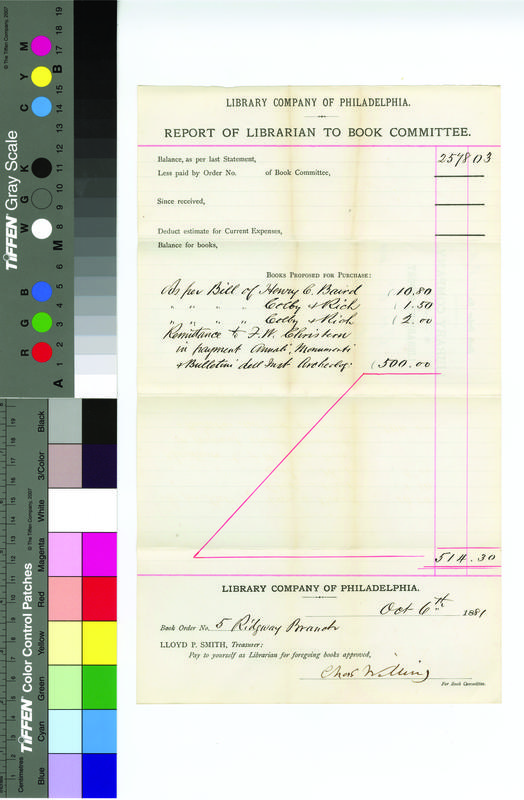 LIBRARY COMPANY OF PHILADELPHIA.
REPORT OF LIBRARIAN TO BOOK COMMITTEE.
Balance, as per last Statement, 2578 03
Less paid by Order No. of Book Committee,
Since received,
Deduct estimate for Current Expenses,
Balance for books,
BOOKS PROPOSED FOR PURCHASE:
As per Bill of Henry C. Baird 10.80
" " " " Colby & Rich 1.50
" " " " Colby & Rich 2.00
Remittance to F. W. Christern
in payment Annali, Monumenti
& Bulletini dell Inst Archeolog: 500.00
514.30
LIBRARY COMPANY OF PHILADELPHIA.
Oct 6th 1881
Book Order No. 5 Ridgway Branch
LLOYD P. SMITH, Treasurer:
Pay to yourself as Librarian for foregoing books approved,
Chas Willing
For Book Committee.
TIFFEN Gray Scale
© The Tiffen Company, 2007
R G B W G K C Y M
A 1 2 3 4 5 6 M 8 9 10 11 12 13 14 15 B 17 18 19
TIFFEN Color Control Patches
© The Tiffen Company, 2007
Blue Cyan Green Yellow Red Magenta White 3/Color Black
Centimetres